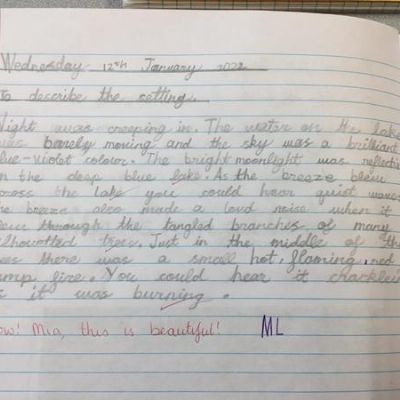 Wednesday 12th January 2022
To describe the setting.
Night was creeping in. The water on the lake
was barely moving and the sky was a brilliant
blue-violet colour. The bright moonlight was reflecting
in the deep blue lake. As the breeze blew
across the lake you could hear quiet waves.
The breeze also made a loud noise when it
blew through the tangled branches of many
silhouetted trees. Just in the middle of the
trees there was a small hot, flaming, red
camp fire. You could hear it crackleing
as it was burning.
Wow! Mia, this is beautiful! ML